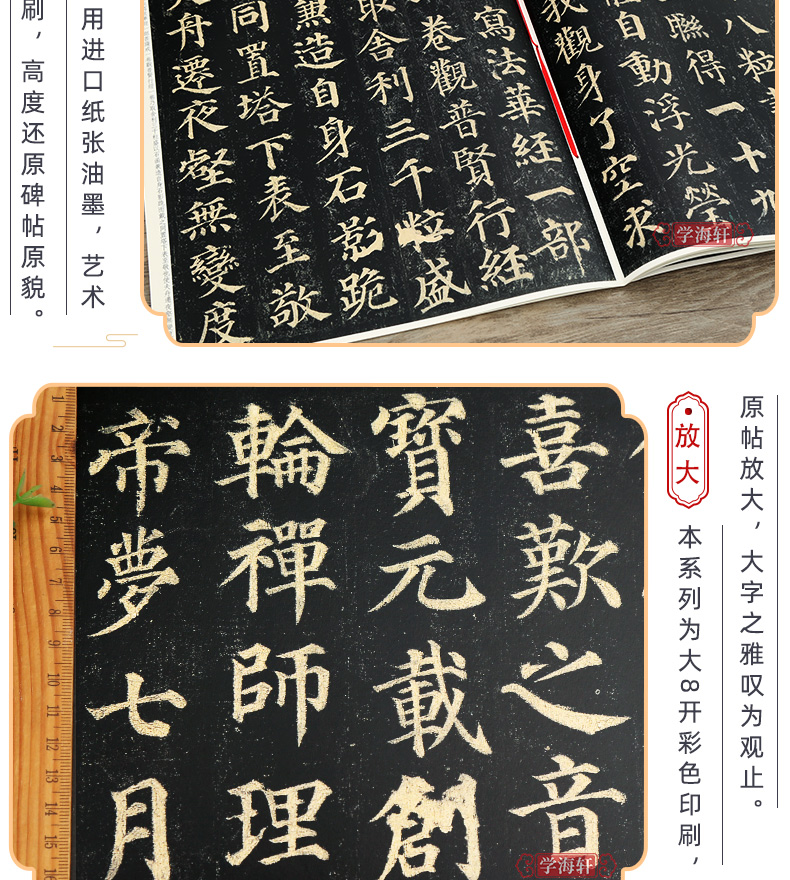 八粒
聮得一十九
自動浮光
我觀身了空求
寫法華経一部
卷觀普賢行経
取舍利三千粒盛
無造自身石影跪
同置塔下表至敬
舟遷夜壑無變度
学海轩
用进口纸张油墨，艺术
刷，高度还原碑帖原貌。
原帖放大，大字之雅叹为观止。
放大
本系列为大8开彩色印刷，
喜歎之音
寶元載創
輪禪師理
帝夢七月
1 2 3 4 5 6 7 8 9 10 11 12 13 14 15 16
学海轩